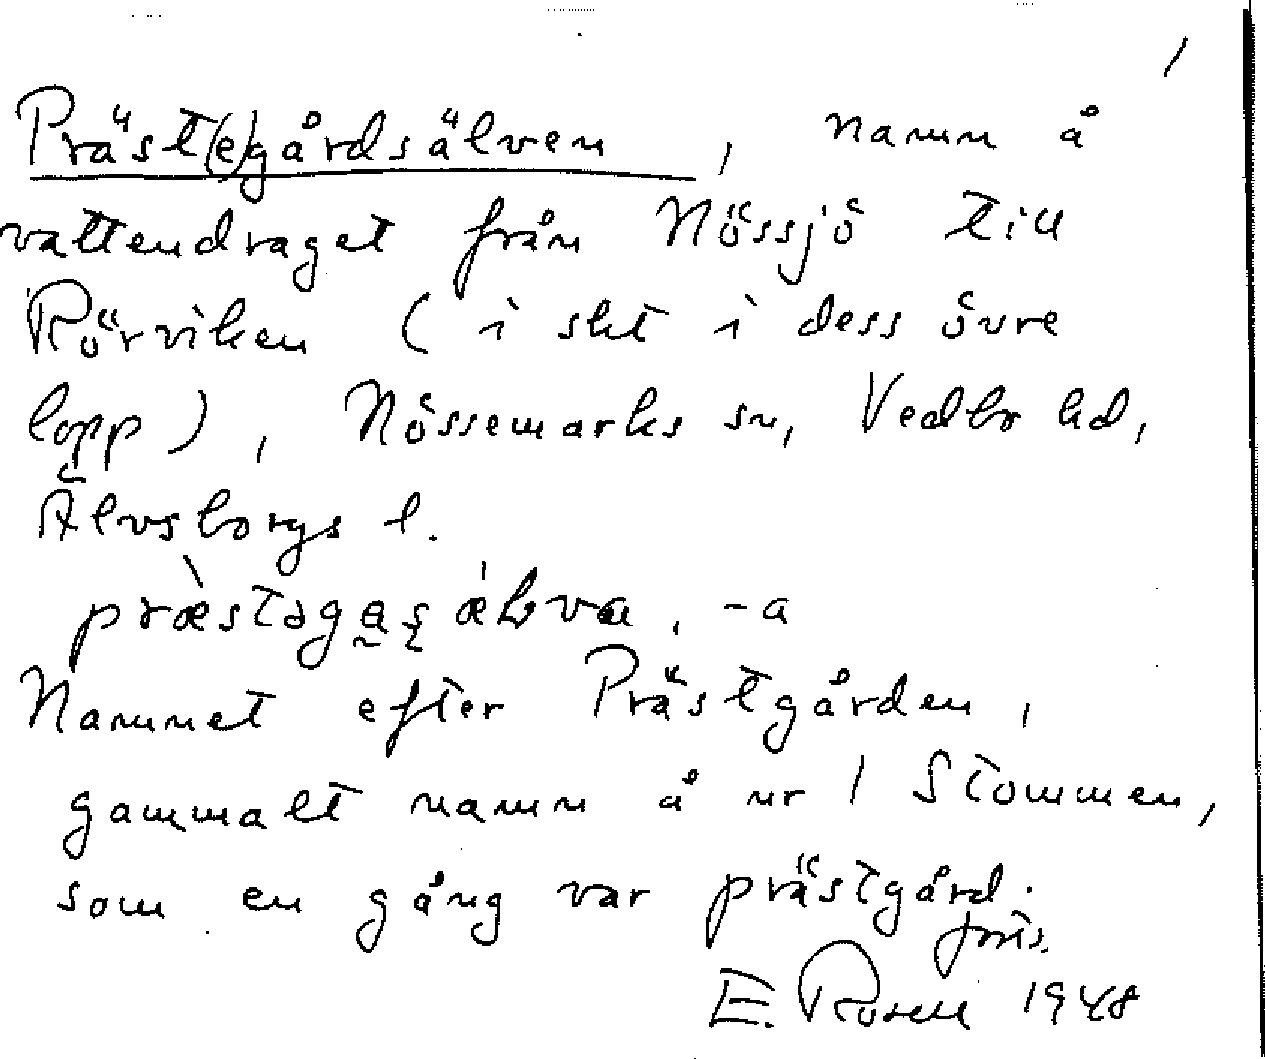 1
Präst(e)gårdsälven, namn å
vattendraget från Nössjö till
Rörviken (i sht i dess övre
lopp), Nössemarks sn, Vedbo hd,
Älvsborgs l.
Namnet efter Prästgården,
gammalt namn å nr 1 Stommen,
som en gång var prästgård.
E. Rosell 1948